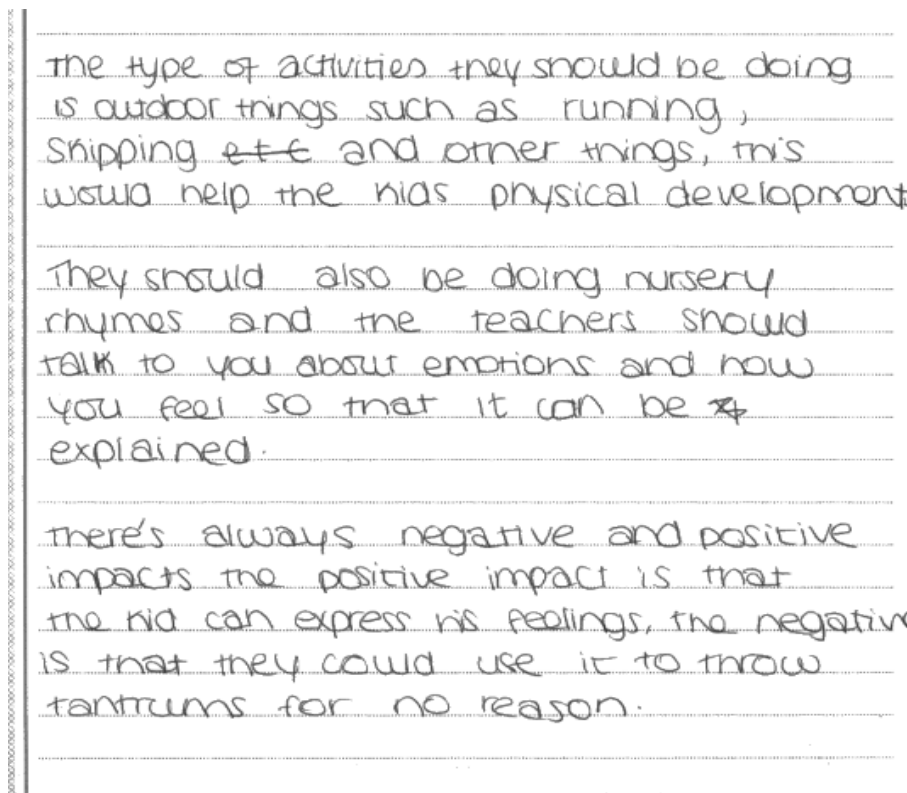 The type of activities they should be doing
is outdoor things such as running,
Skipping etc and other things, this
would help the kids physical development
They should also be doing nursery
rhymes and the teachers should
talk to you about emotions and how
you feel so that it can be
explained.
There's always negative and positive
impacts the positive impact is that
the kid can express his feelings, the negativ
is that they could use it to throw
tantrums for no reason.